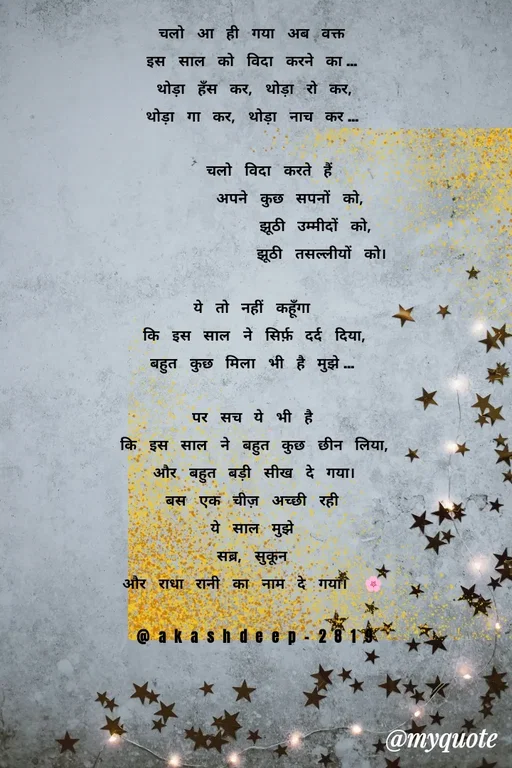 चलो आ ही गया अब वक्त
इस साल को विदा करने का...
थोड़ा हँस कर, थोड़ा रो कर,
थोड़ा गा कर, थोड़ा नाच कर...
चलो विदा करते हैं
अपने कुछ सपनों को,
झूठी उम्मीदों को,
झूठी तसल्लीयों को।
ये तो नहीं कहूँगा
कि इस साल ने सिर्फ़ दर्द दिया,
बहुत कुछ मिला भी है मुझे...
पर सच ये भी है
कि इस साल ने बहुत कुछ छीन लिया,
और बहुत बड़ी सीख दे गया।
बस एक चीज़ अच्छी रही
ये साल मुझे
सब्र, सुकून
और राधा रानी का नाम दे गया। 🌸
@myquote